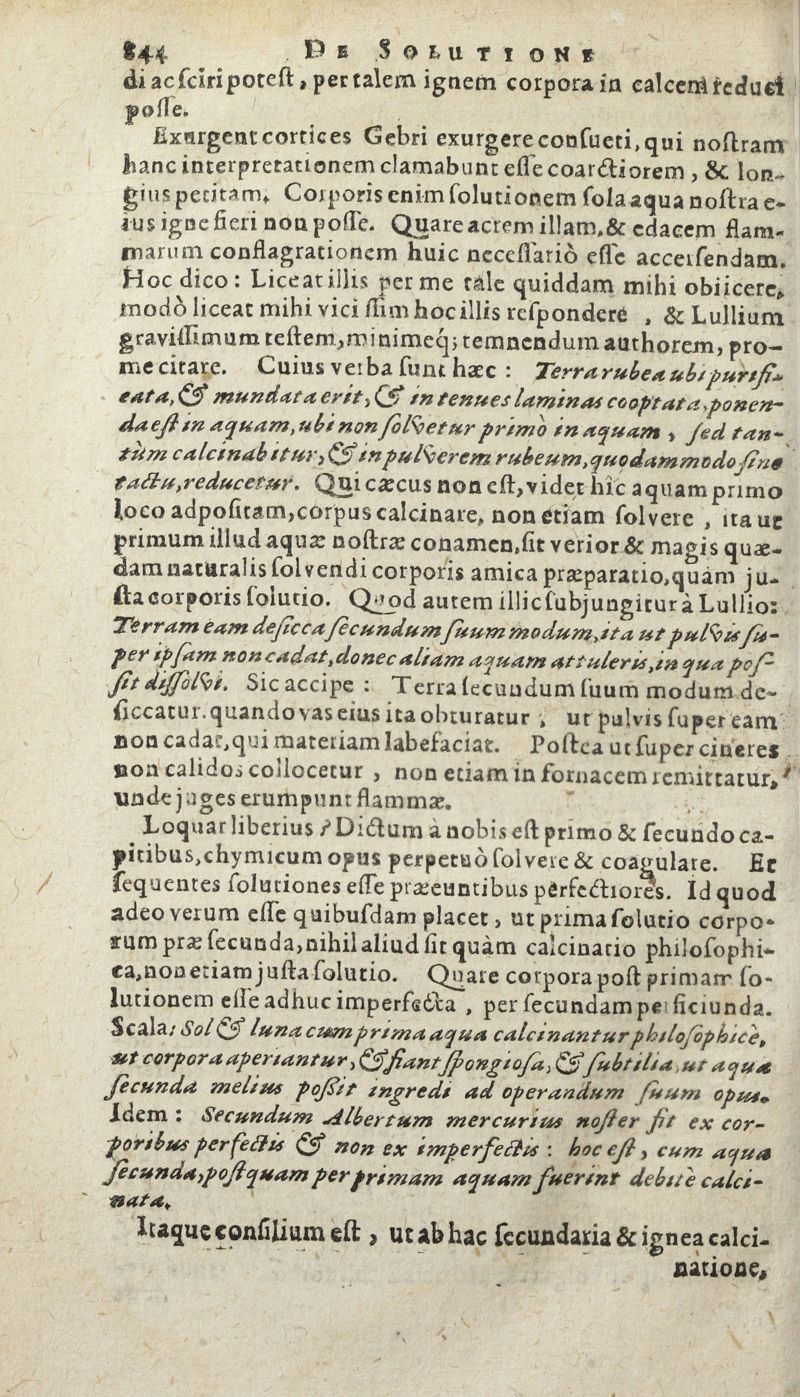 844 DE SOLUTIONE
di ac ſciri poteſt, per talem ignem corpora in calcem reduci
poſſe.
Exurgent cortices Gebri exurgere conſueti, qui noſtram
hanc interpretationem clamabunt eſſe coarctiorem, & lon-
gius petitam. Corporis enim ſolutionem ſola aqua noſtra e-
ius igne fieri non poſſe. Quare acrem illam, & edacem flam-
marum conflagrationem huic neceſſariò eſſe accerſendam.
Hoc dico: Liceat illis per me tale quiddam mihi obiicere,
modò liceat mihi viciſſim hoc illis reſpondere, & Lullium
graviſſimum teſtem, minimeq; temnendum authorem, pro-
me citare. Cuius verba ſunt hæc: Terra rubea ubi purifi-
cata, & mundata erit, & in tenues laminas cooptata, ponen-
da eſt in aquam, ubi non ſolvetur primò in aquam, ſed tan-
tùm calcinabitur, & in pulverem rubeum, quodammodo ſine
tactu, reducetur. Qui cæcus non eſt, videt hîc aquam primo
loco adpoſitam, corpus calcinare, non etiam ſolvere, ita ut
primum illud aquæ noſtræ conamen, ſit verior & magis quæ-
dam naturalis ſolvendi corporis amica præparatio, quàm ju-
ſta corporis ſolutio. Quod autem illic ſubjungitur à Lullio:
Terram eam deſicca ſecundum ſuum modum, ita ut pulvis ſu-
per ipſam non cadat, donec aliam aquam attuleris, in qua poſ-
ſit diſſolvi. Sic accipe: Terra ſecundum ſuum modum de-
ſiccatur. quando vas eius ita obturatur, ut pulvis ſuper eam
non cadat, qui materiam labefaciat. Poſtea ut ſuper cineres
non calidos collocetur, non etiam in fornacem remittatur,
unde juges erumpunt flammæ.
Loquar liberius? Dictum à nobis eſt primo & ſecundo ca-
pitibus, chymicum opus perpetuò ſolvere & coagulare. Et
ſequentes ſolutiones eſſe præeuntibus perfectiores. Id quod
adeo verum eſſe quibuſdam placet, ut prima ſolutio corpo-
rum præ ſecunda, nihil aliud ſit quàm calcinatio philoſophi-
ca, non etiam juſta ſolutio. Quare corpora poſt primam ſo-
lutionem eſſe adhuc imperfecta, per ſecundam perficiunda.
Scala: Sol & luna cum prima aqua calcinantur philoſophicè,
ut corpora aperiantur, & fiant ſpongioſa, & ſubtilia, ut aqua
ſecunda melius poſſit ingredi ad operandum ſuum opus.
Idem: Secundum Albertum mercurius noſter fit ex cor-
poribus perfectis & non ex imperfectis: hoc eſt, cum aqua
ſecunda, poſtquam per primam aquam fuerint debitè calci-
nata.
Itaque conſilium eſt, ut ab hac ſecundaria & ignea calci-
natione,